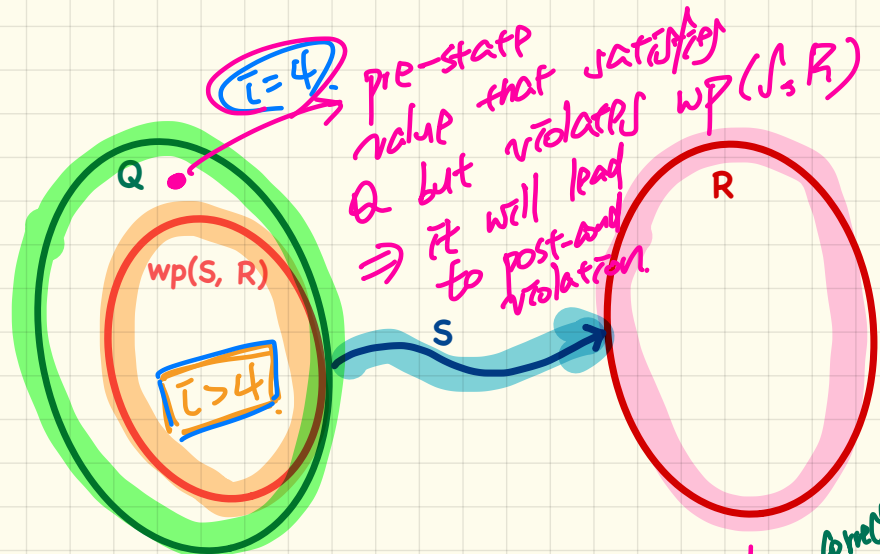 i=4.
pre-state
value that satisfies
Q but violates wp(S, R)
⇒ it will lead
to post-cond
violation.
Q
R
wp(S, R)
S
i>4.